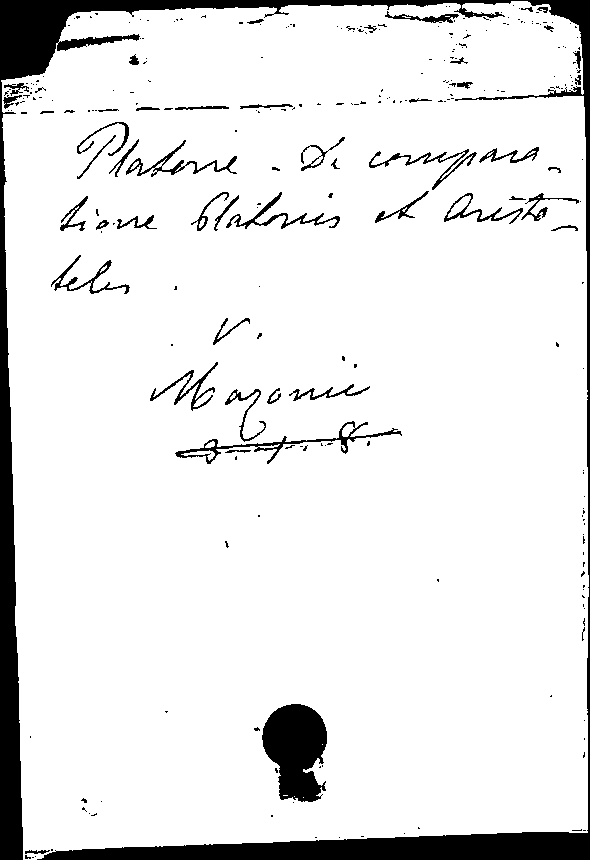 Platone - De compara-
tione Platonis et Aristo-
teles.
V.
Mazonii
3. 4. 8.